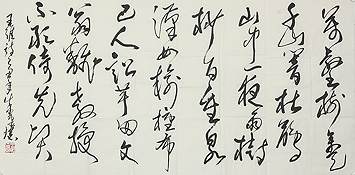 萬壑樹參天
千山響杜鵑
山中一夜雨樹
杪百重泉
漢女輸橦布
巴人訟芋田文
翁翻教授
不敢倚先賢
王維詩